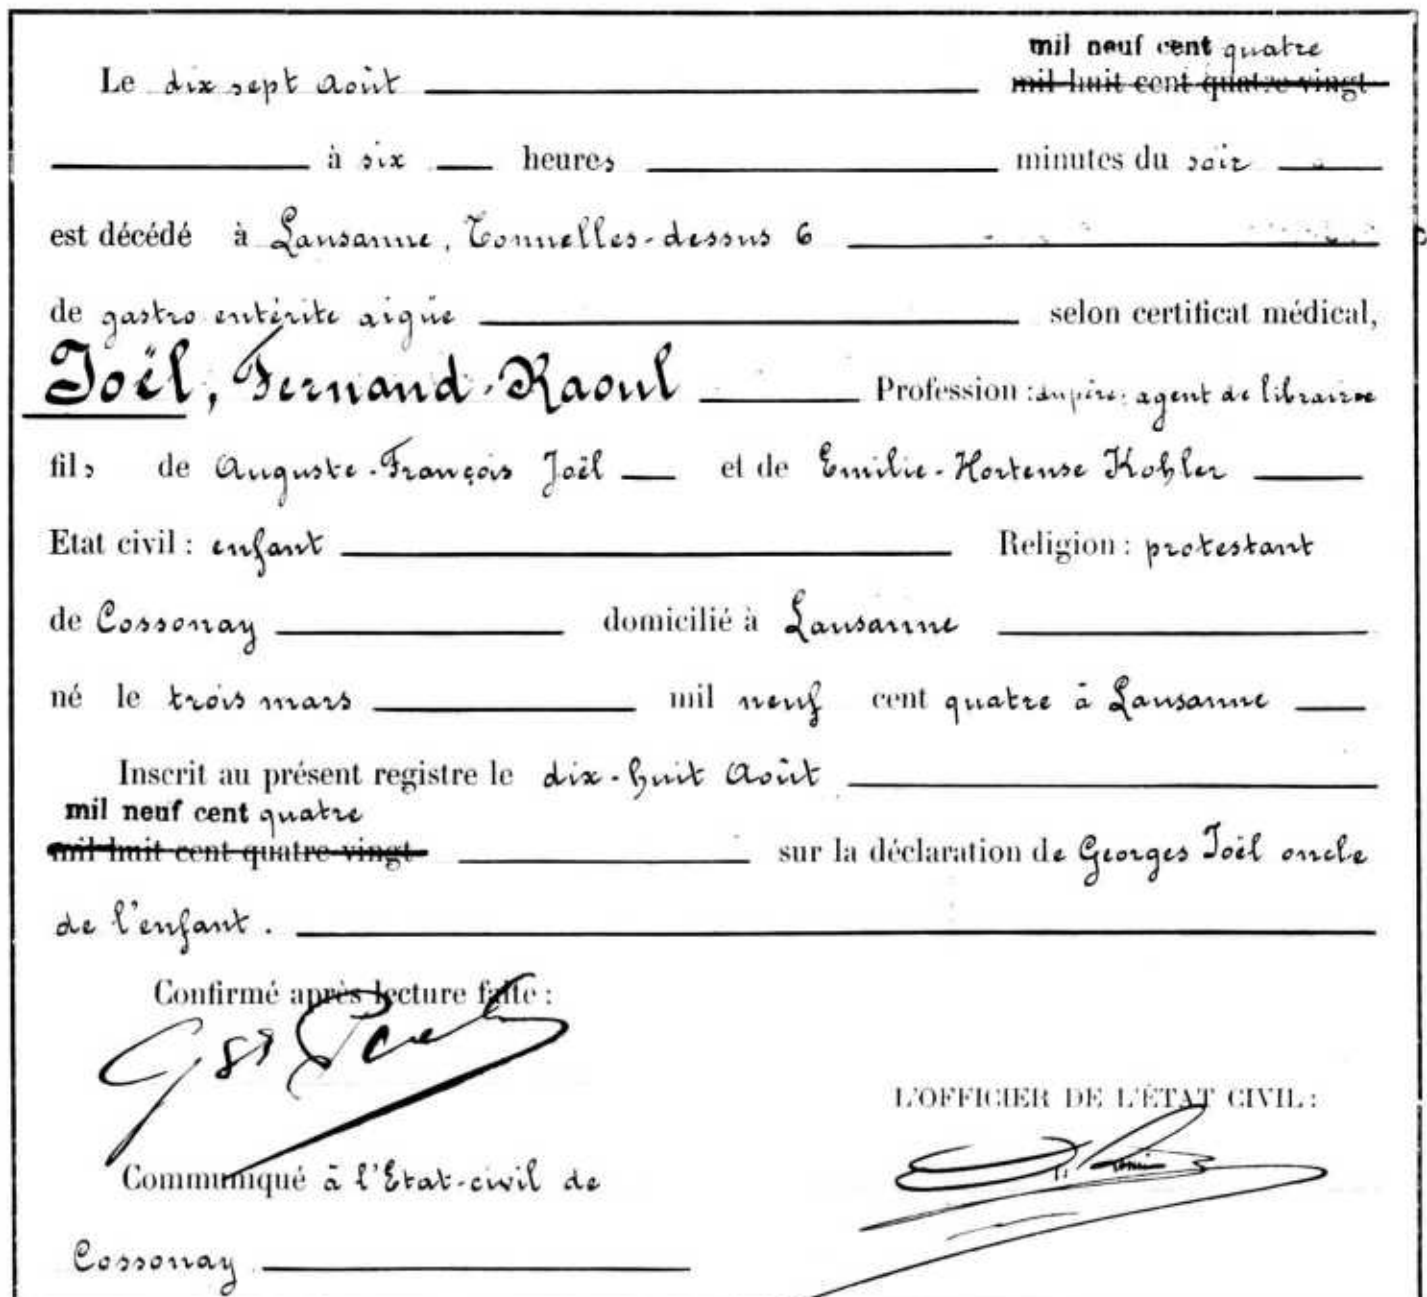 mil neuf cent quatre
Le dix sept Août mil huit cent quatre-vingt
à six heures minutes du soir
est décédé à Lausanne, Tonnelles-dessus 6
de gastro entérite aigüe selon certificat médical,
Joël, Fernand-Raoul Profession : du père: agent de librairie
fils de Auguste-François Joël et de Emilie-Hortense Kohler
Etat civil : enfant Religion : protestant
de Cossonay domicilié à Lausanne
né le trois mars mil neuf cent quatre à Lausanne
Inscrit au présent registre le dix-huit Août
mil neuf cent quatre
mil huit cent quatre-vingt sur la déclaration de Georges Joël oncle
de l'enfant.
Confirmé après lecture faite :
L'OFFICIER DE L'ÉTAT CIVIL :
Communiqué à l'Etat-civil de
Cossonay